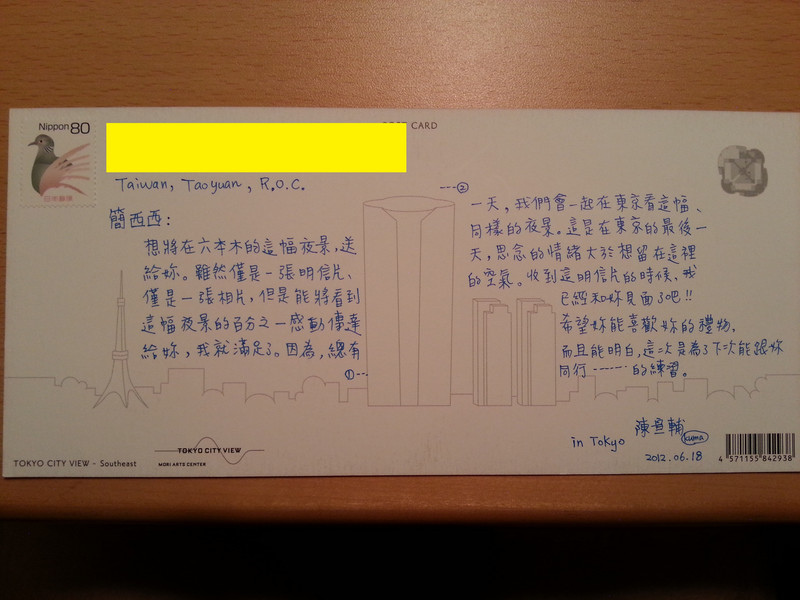 Nippon 80
日本郵便
CARD
Taiwan, Taoyuan, R.O.C.
簡西西：
想將在六本木的這幅夜景，送
給妳。雖然僅是一張明信片、
僅是一張相片，但是能將看到
這幅夜景的百分之一感動傳達
給妳，我就滿足了。因為，總有
①---
---②
一天，我們會一起在東京看這幅、
同樣的夜景。這是在東京的最後一
天，思念的情緒大於想留在這裡
的空氣。收到這明信片的時候，我
已經和妳見面了吧!!
希望妳能喜歡妳的禮物，
而且能明白，這一次是為了下次能跟妳
同行………的練習。
陳昱輔
kuma
in Tokyo
2012.06.18
TOKYO CITY VIEW - Southeast
TOKYO CITY VIEW
MORI ARTS CENTER
4 571155 842938